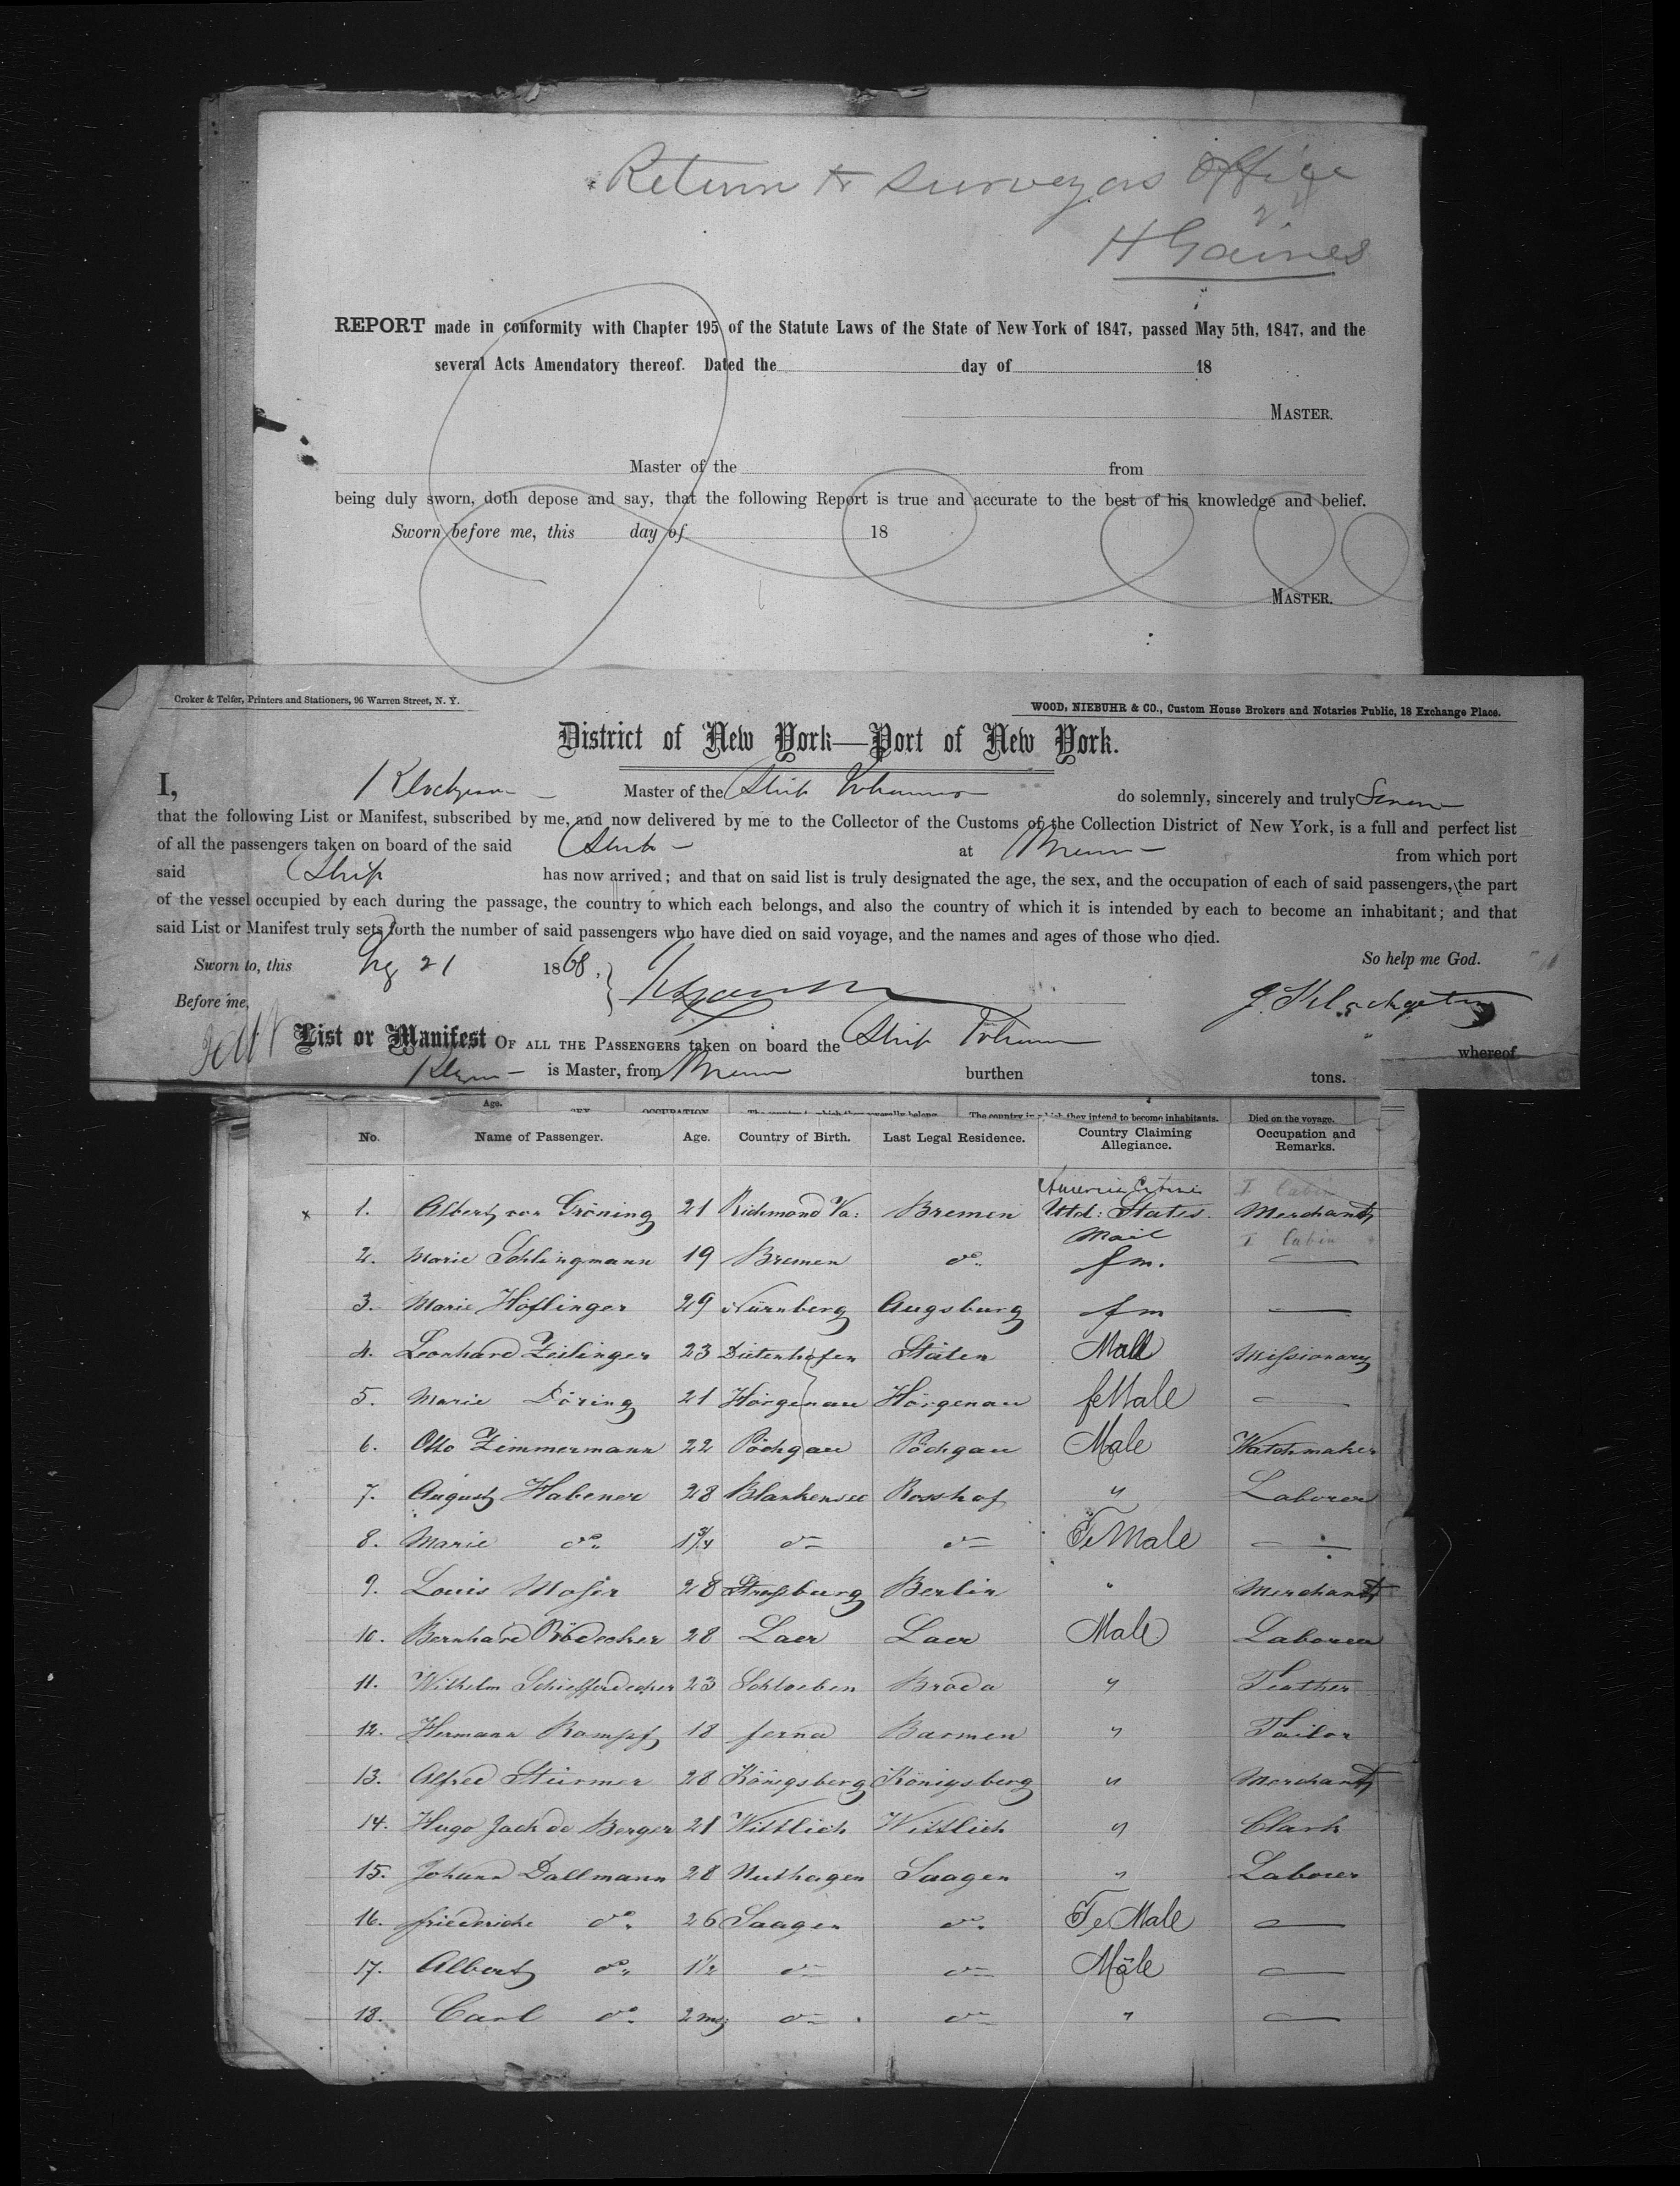 Return to Surveyors Office
H Gaines
REPORT made in conformity with Chapter 195 of the Statute Laws of the State of New York of 1847, passed May 5th, 1847, and the
several Acts Amendatory thereof. Dated the day of 18
MASTER.
Master of the from
being duly sworn, doth depose and say, that the following Report is true and accurate to the best of his knowledge and belief.
Sworn before me, this day of 18
MASTER.
Croker & Telfer, Printers and Stationers, 96 Warren Street, N. Y.
WOOD, NIEBUHR & CO., Custom House Brokers and Notaries Public, 18 Exchange Place.
District of New York—Port of New York.
I, Master of the Ship do solemnly, sincerely and truly
that the following List or Manifest, subscribed by me, and now delivered by me to the Collector of the Customs of the Collection District of New York, is a full and perfect list
of all the passengers taken on board of the said Ship at Bremen from which port
said Ship has now arrived; and that on said list is truly designated the age, the sex, and the occupation of each of said passengers, the part
of the vessel occupied by each during the passage, the country to which each belongs, and also the country of which it is intended by each to become an inhabitant; and that
said List or Manifest truly sets forth the number of said passengers who have died on said voyage, and the names and ages of those who died.
Sworn to, this 21 1868, So help me God.
Before me,
List or Manifest OF ALL THE PASSENGERS taken on board the Ship whereof
is Master, from Bremen burthen tons.
Age. SEX. OCCUPATION. The country to which they severally belong. The country in which they intend to become inhabitants. Died on the voyage.
No. Name of Passenger. Age. Country of Birth. Last Legal Residence. Country Claiming Allegiance. Occupation and Remarks.
I Cabin
x 1. Albert von Gröning 21 Richmond Va: Bremen Utd: States. Merchant
Male I Cabin
2. Marie Schlingmann 19 Bremen do. fm. —
3. Marie Höflinger 29 Nürnberg Augsburg fm —
4. Leonhard Zeilinger 23 Dietenhofen Male Missionary
5. Marie Döring 21 Hörgenau Hörgenau feMale —
6. Otto Zimmermann 22 Pöchgau Pöchgau Male Watchmaker
7. August Habener 28 Blankensee Rosshof " Laborer
8. Marie do. 1 3/4 do do FeMale —
9. Louis Moser 28 Strassburg Berlin " Merchant
10. Bernhard Bödecker 28 Laer Laer Male Laborer
11. Wilhelm Schiefferdecker 23 Schloeben Broda " Teather
12. Hermann Rompf 18 ferna Barmen " Tailor
13. Alfred Stürmer 28 Königsberg Königsberg " Merchant
14. Hugo Jack de Berger 21 Wittlich Wittlich " Clark
15. Johann Dallmann 28 Neuthagen Saagen " Laborer
16. friedericke do. 26 Saagen do. FeMale —
17. Albert do. 1 1/2 do do Male —
18. Carl do. 2 mo do do " —